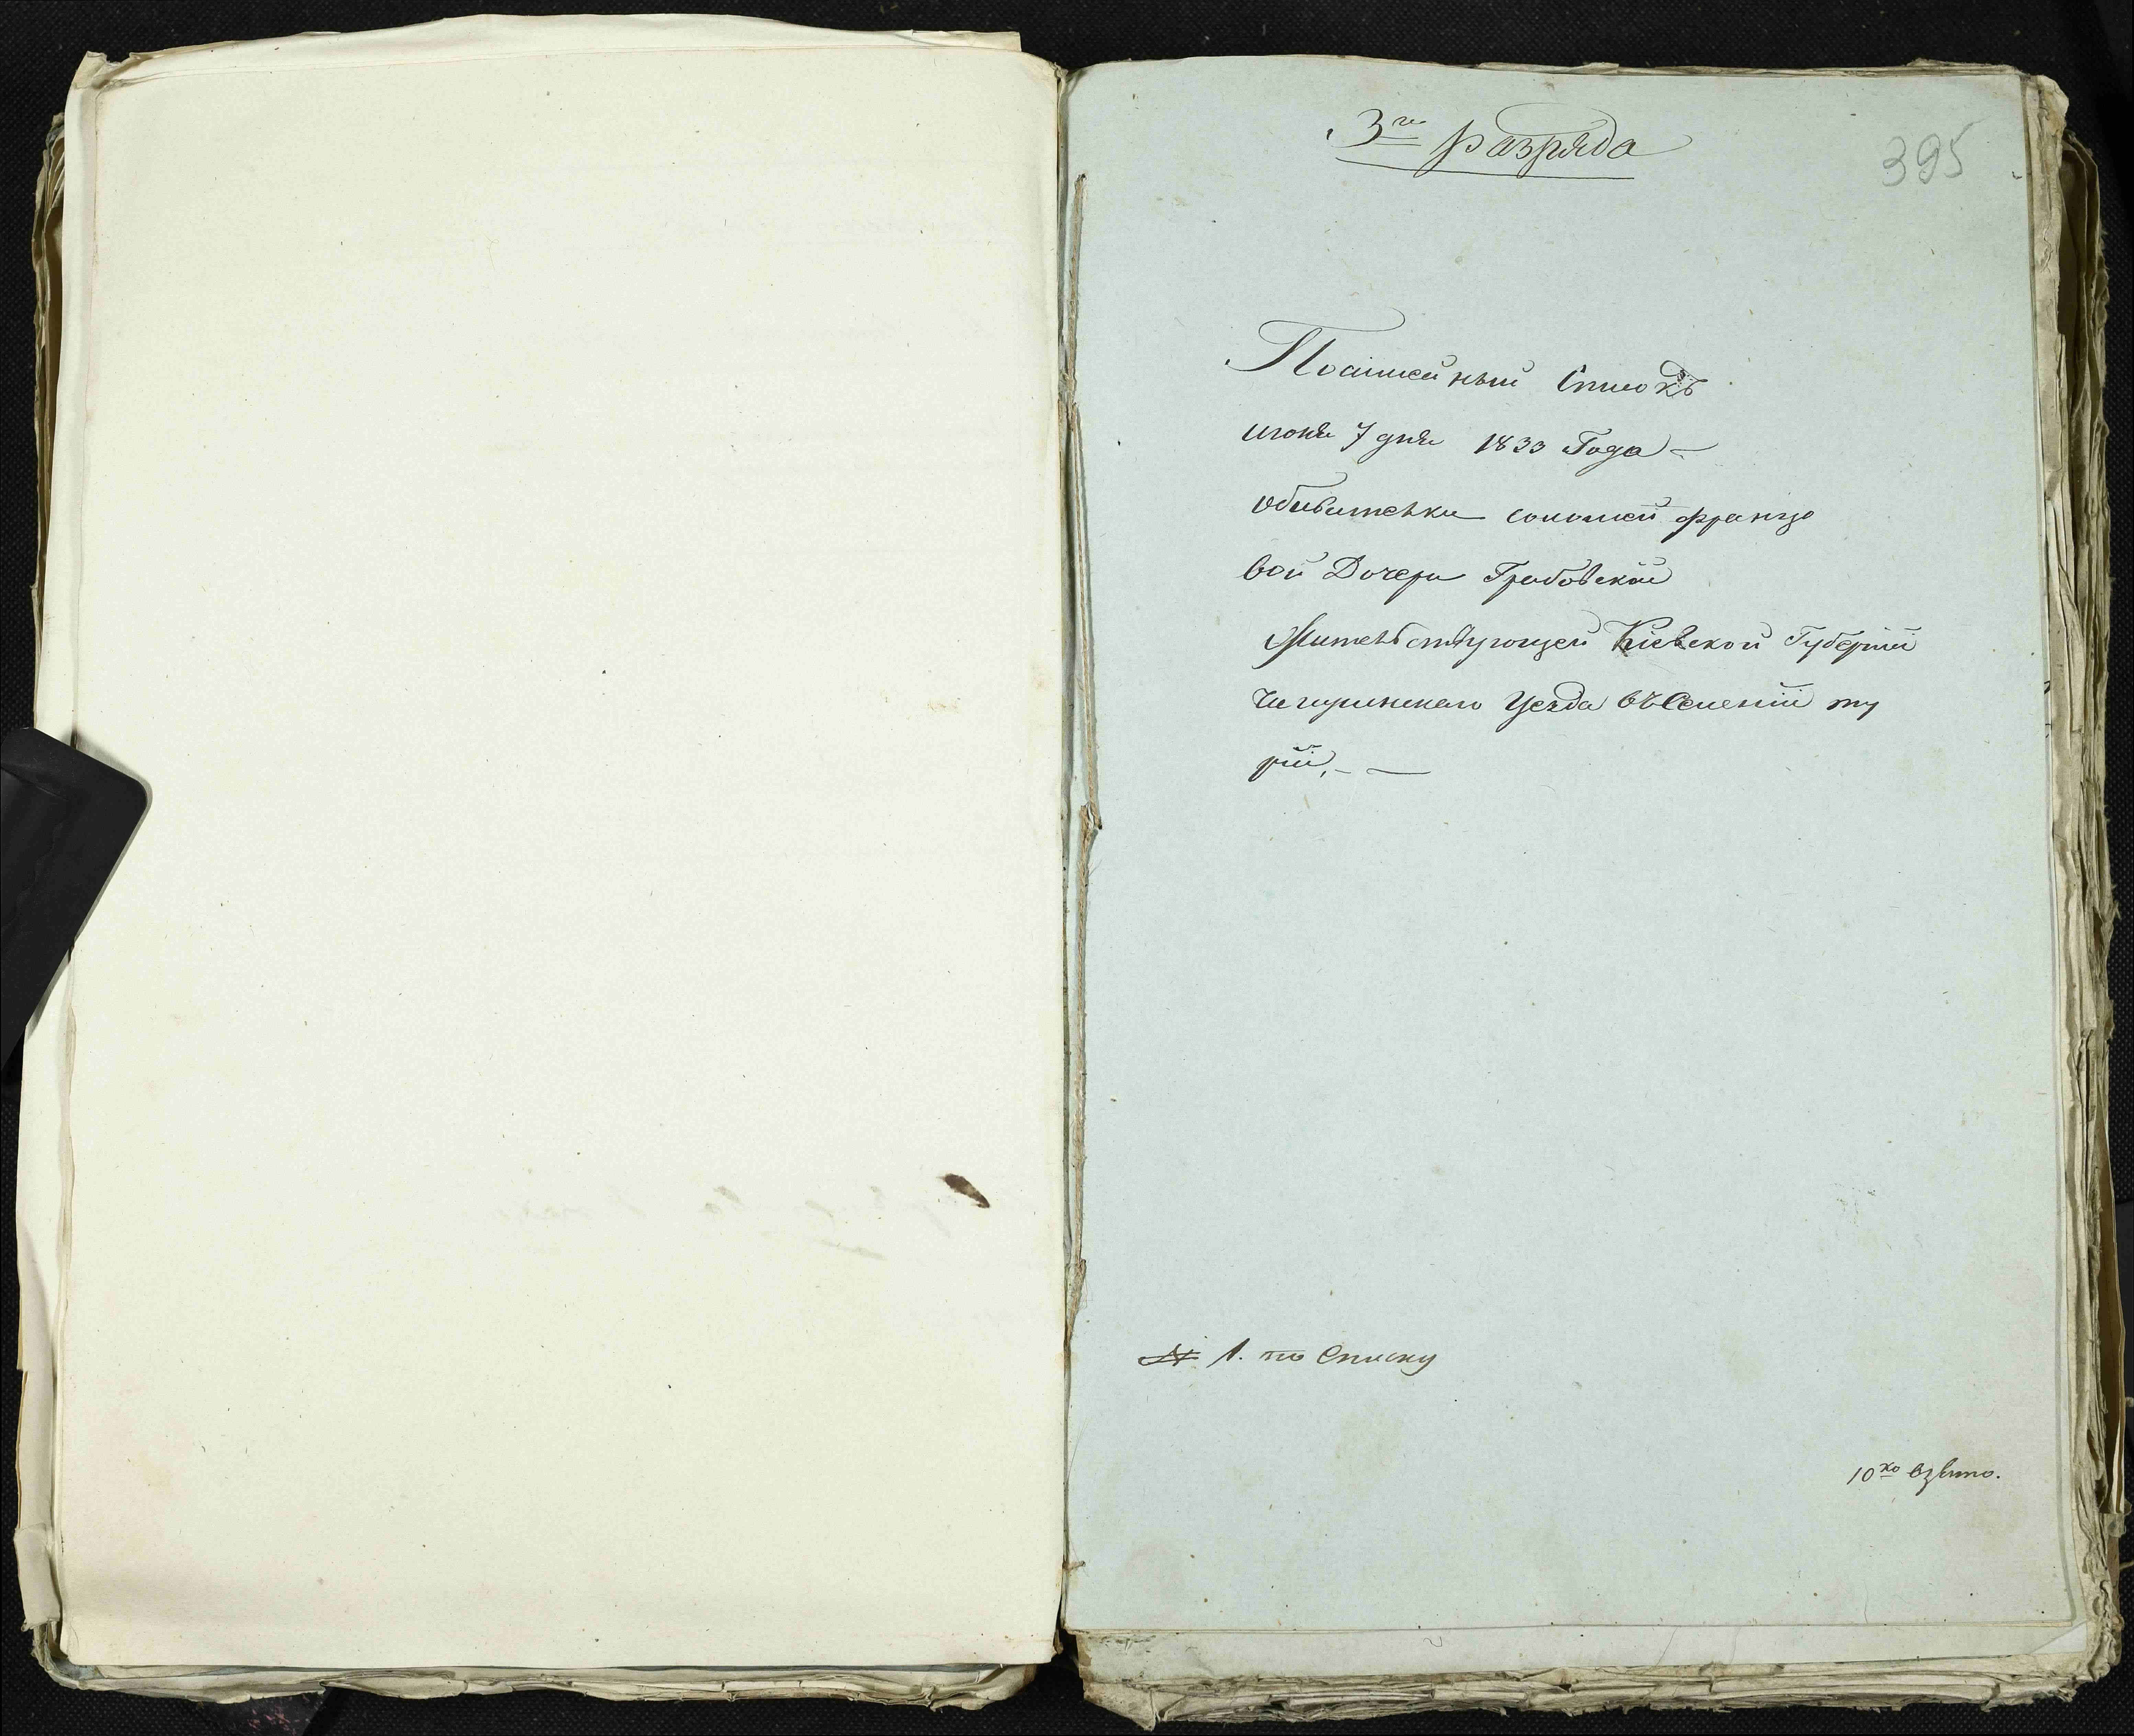 3го разряда
395
Посімейный Списокъ
июня 7 дня 1833 Года
обивательки соломеи францо
вой Дочери Грабовской
Жительствующей Кіевской Губерніи
Чигиринскаго Уезда въ Селеніи ту
ріи.
№ 1. по Списку
10ко взыто.